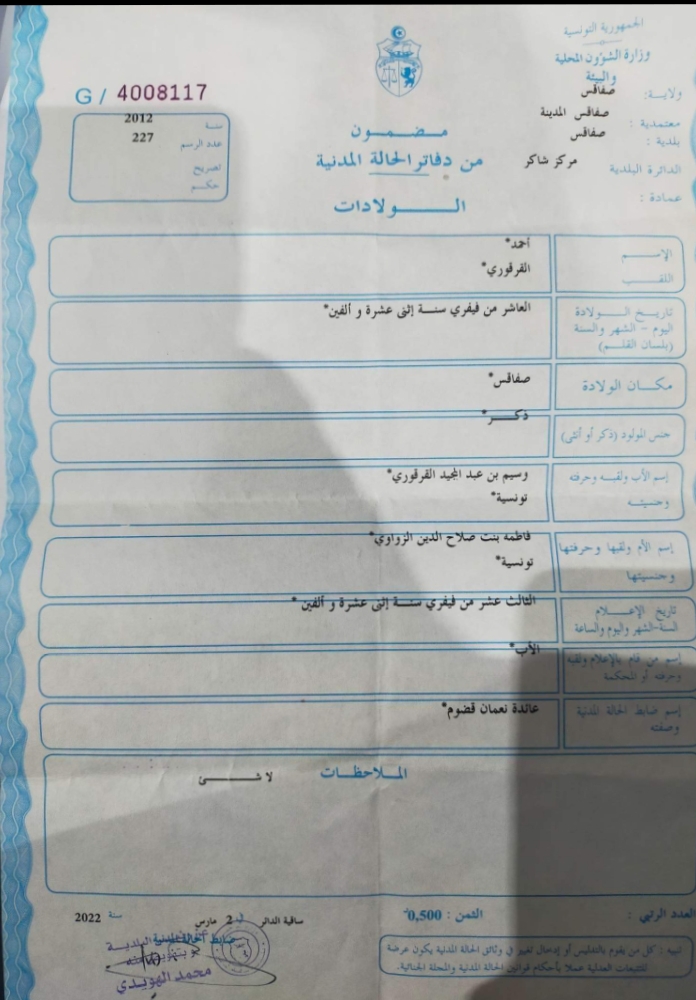 الجمهورية التونسية
وزارة الشؤون المحلية
والبيئة
ولاية: صفاقس
معتمدية : صفاقس المدينة
بلدية : صفاقس
الدائرة البلدية مركز شاكر
عمادة :
G / 4008117
سنة 2012
عدد الرسم 227
تصريح
حكم
مضمون
من دفاتر الحالة المدنية
الولادات
الإسم أحمد*
اللقب القرقوري*
تاريخ الولادة العاشر من فيفري سنة إثنى عشرة و ألفين*
اليوم - الشهر والسنة
(بلسان القلم)
مكان الولادة صفاقس*
جنس المولود (ذكر أو أنثى) ذكر*
إسم الأب ولقبه وحرفته وسيم بن عبد المجيد القرقوري*
وجنسيته تونسية*
إسم الأم ولقبها وحرفتها فاطمة بنت صلاح الدين الزواوي*
وجنسيتها تونسية*
تاريخ الإعلام الثالث عشر من فيفري سنة إثنى عشرة و ألفين *
السنة-الشهر واليوم والساعة
إسم من قام بالإعلام ولقبه الأب*
وحرفته أو المحكمة
إسم ضابط الحالة المدنية عائدة نعمان قضوم*
وصفته
الملاحظات
لا شئ
العدد الرتبي :
الثمن : 0,500
ساقية الدائر في 2 مارس سنة 2022
ضابط الحالة المدنية
محمد الهويدي
تنبيه : كل من يقوم بالتدليس أو إدخال تغيير في وثائق الحالة المدنية يكون عرضة
للتتبعات العدلية عملا بأحكام قوانين الحالة المدنية والمجلة الجنائية.